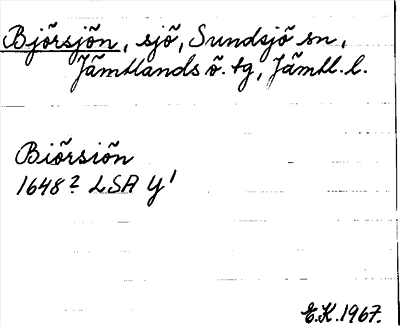 Björsjön, sjö, Sundsjö sn,
Jämtlands ö. tg, Jämtl. l.
Biörsiön
1648? LSA Y¹
E.K. 1967.